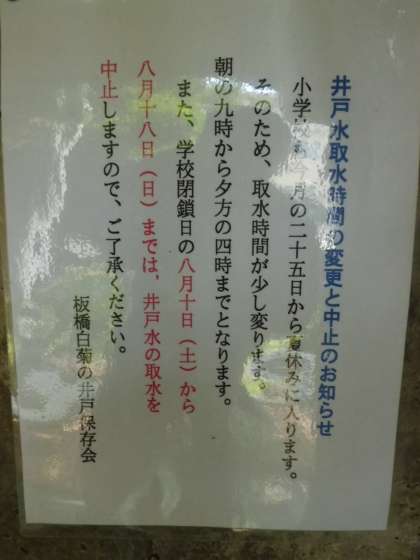 井戸水取水時間の変更と中止のお知らせ
小学校も今月の二十五日から夏休みに入ります。
そのため、取水時間が少し変ります。
朝の九時から夕方の四時までとなります。
また、学校閉鎖日の八月十日（土）から
八月十八日（日）までは、井戸水の取水を
中止しますので、ご了承ください。
板橋白菊の井戸保存会